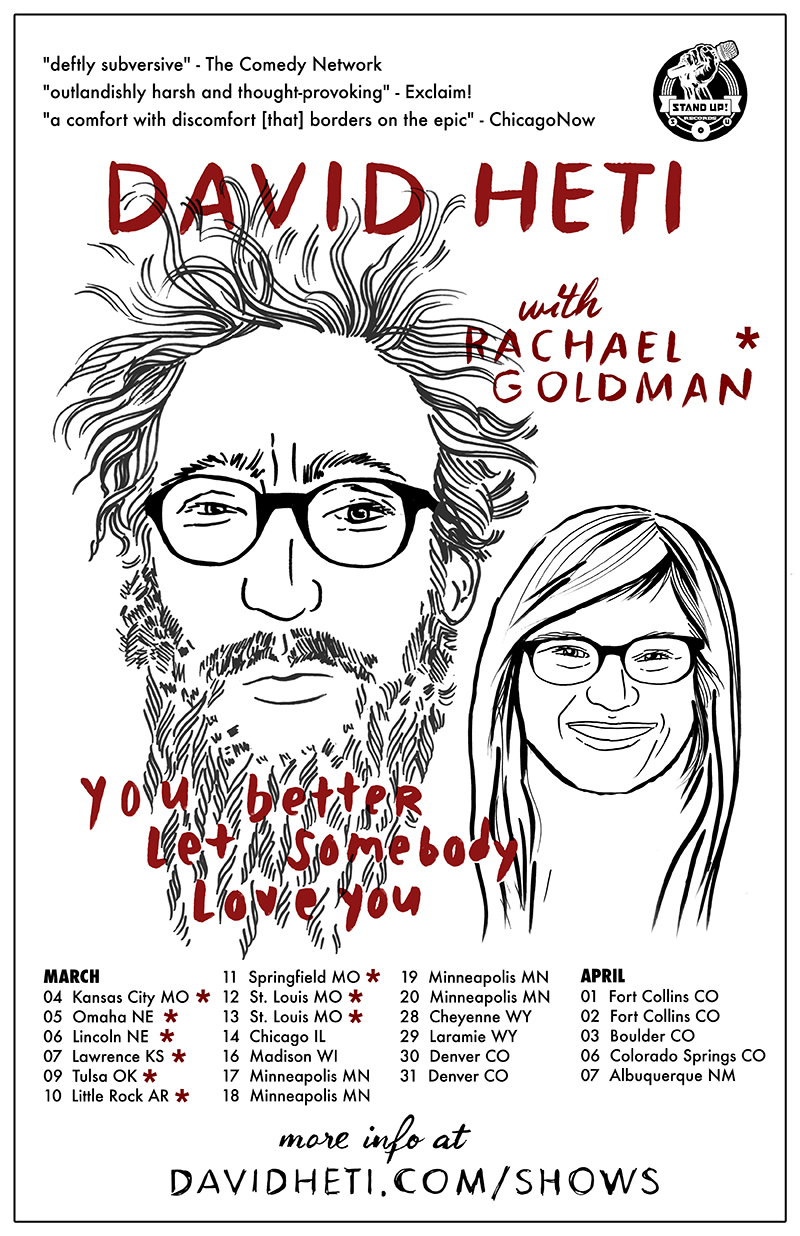 "deftly subversive" - The Comedy Network
"outlandishly harsh and thought-provoking" - Exclaim!
"a comfort with discomfort [that] borders on the epic" - ChicagoNow
STAND UP!
RECORDS
DAVID HETI
with
RACHAEL *
GOLDMAN
you better
Let somebody
Love you
MARCH
04 Kansas City MO *
05 Omaha NE *
06 Lincoln NE *
07 Lawrence KS *
09 Tulsa OK *
10 Little Rock AR *
11 Springfield MO *
12 St. Louis MO *
13 St. Louis MO *
14 Chicago IL
16 Madison WI
17 Minneapolis MN
18 Minneapolis MN
19 Minneapolis MN
20 Minneapolis MN
28 Cheyenne WY
29 Laramie WY
30 Denver CO
31 Denver CO
APRIL
01 Fort Collins CO
02 Fort Collins CO
03 Boulder CO
06 Colorado Springs CO
07 Albuquerque NM
more info at
DAVIDHETI.COM/SHOWS